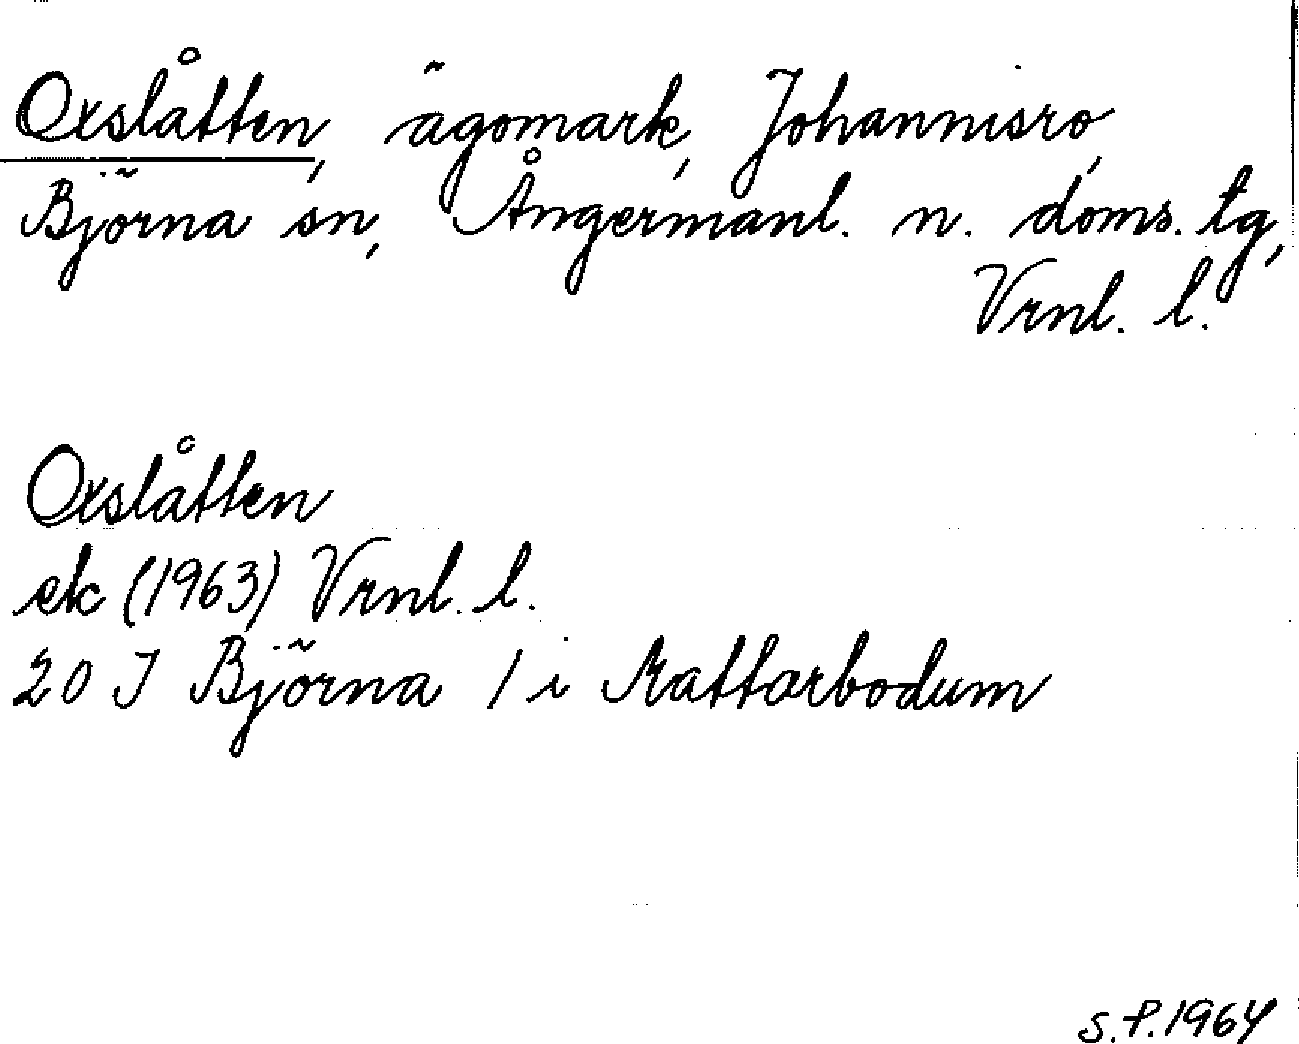 Oxslåtten, ägomark, Johannisro,
Björna sn, Ångermanl. n. doms. tg,
Vrnl. l.
Oxslåtten
ek (1963) Vrnl. l.
20 I Björna / i Kattarbodum
S.P. 1964